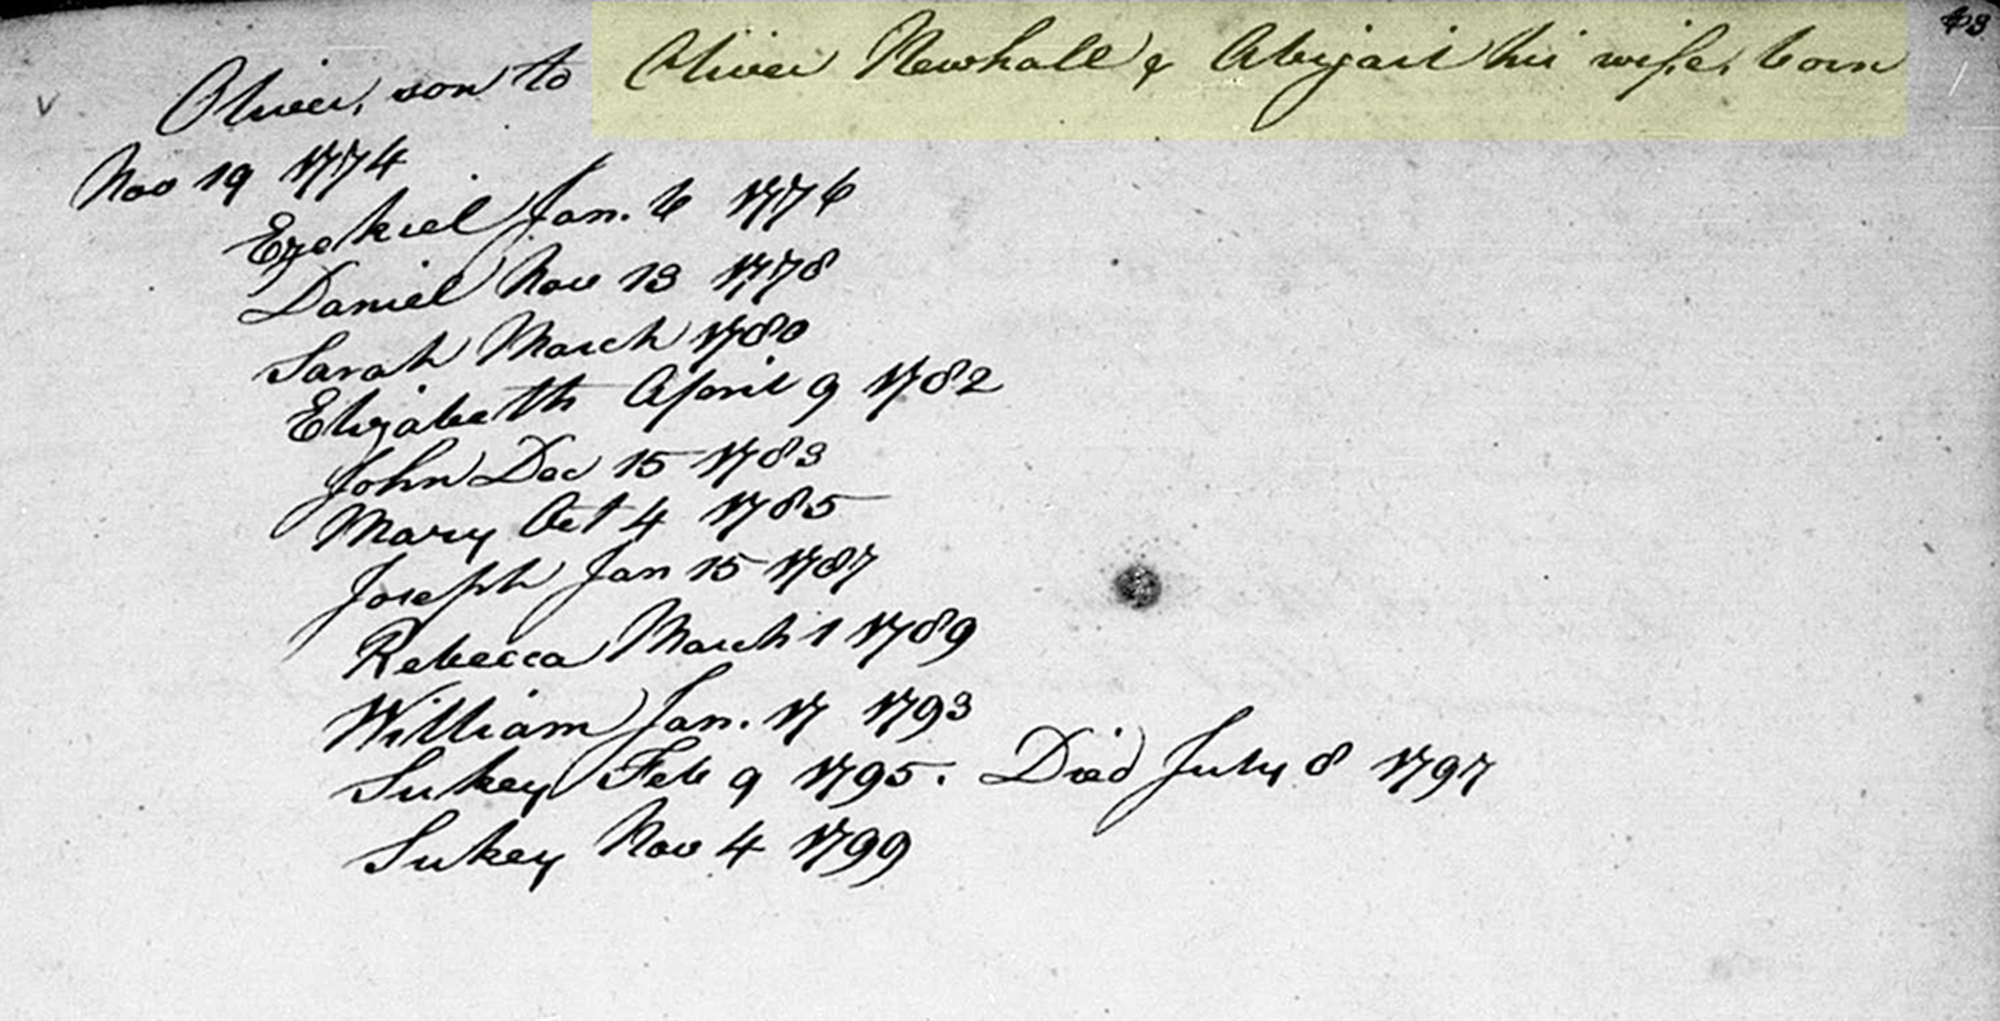 Oliver, son to Oliver Newhall & Abigail his wife, born
Nov 19 1774
Ezekiel Jan. 6 1776
Daniel Nov 13 1778
Sarah March 1780
Elizabeth April 9 1782
John Dec 15 1783
Mary Oct 4 1785
Joseph Jan 15 1787
Rebecca March 1 1789
William Jan. 17 1793
Sukey Feb 9 1795. Died July 8 1797
Sukey Nov 4 1799